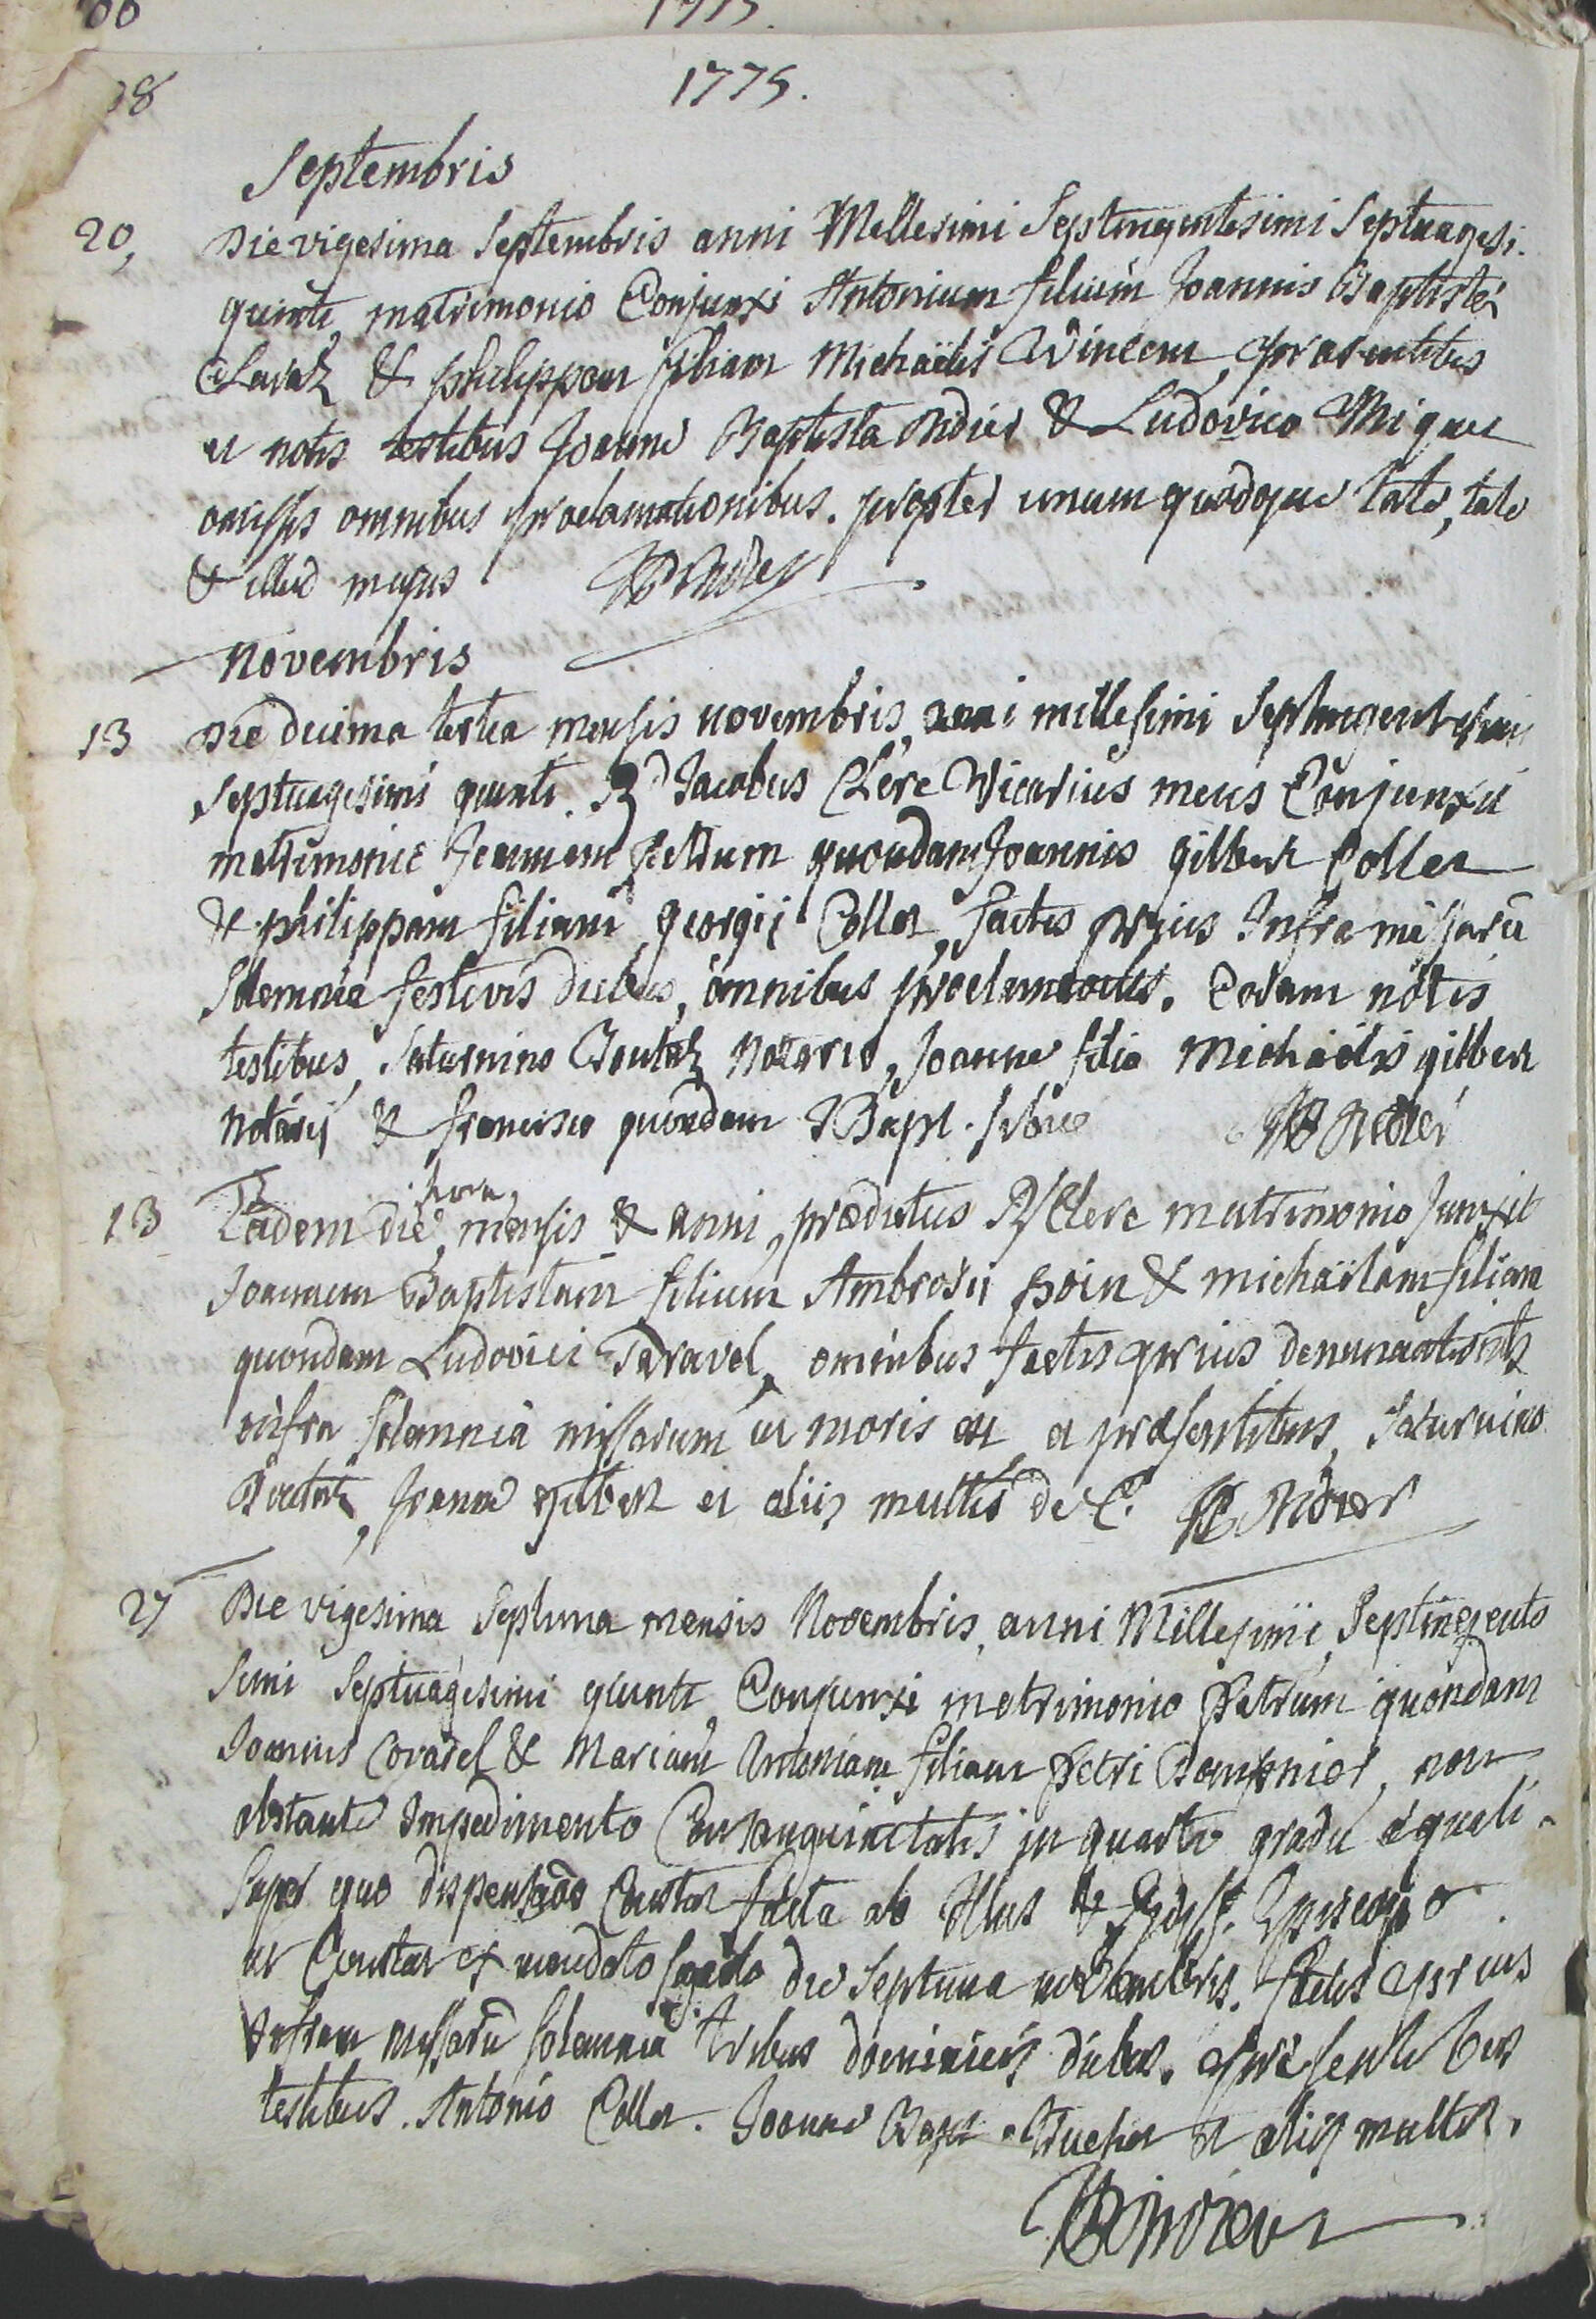 1775.
Septembris
20, Die vigesima Septembris anni Millesimi Septingentesimi Septuagesi.
quinti, matrimonio Conjunxi Antonium filium Joannis Baptistei
& philippam filiam Michaëlis Vincent, praesentibus
et notis testibus Joanne Baptista Didier & Ludovico Mi
omissis omnibus proclamationibus. propter unum quodque tale, tale
& illud
Novembris
13 Die decima tertia mensis novembris, anni millesimi Septingentesimi
Septuagesimi quinti. Rd Jacobus Clerc Vicarius meus Conjunxit
matrimonio Petrum quondam Joannis gilbert Collet
& philippam filiam georgii Collet, factis prius Infra missarũ
Solemnia festivis diebus, omnibus Coram notis
testibus, Saturnino notario, Joanne filio Michaëlis gilbert
notarij & francisco quondam JBapt.
13 Eadem die, hora, mensis & anni, praedictus Rd Clerc matrimonio Junxit
Joannem Baptistam filium Ambrosii & michaëlam filiam
quondam Ludovici Taravel, omnibus factis prius denunciationib
infra solemnia missarum ut moris est et praesentibus, Saturnino
Joanne gilbert et aliis multis
27 Die vigesima Septima mensis Novembris, anni Millesimi, Septingente
simi Septuagesimi quinti, Conjunxi matrimonio Petrum quondam
Joannis Covarel & Mariam Antoniam filiam Petri Dompnier, non
obstante Impedimento Consanguinitatis in quarto gradu equali.
Super quo Constat facta ab Illus & Episcopo
ut Constat ex mandato die Septima novembris. factis prius
Infra missarũ solemnia tribus dominicis diebus. praesentibus
testibus. Antonio Collet. Joanne Bapt. Trucher et aliis multis.